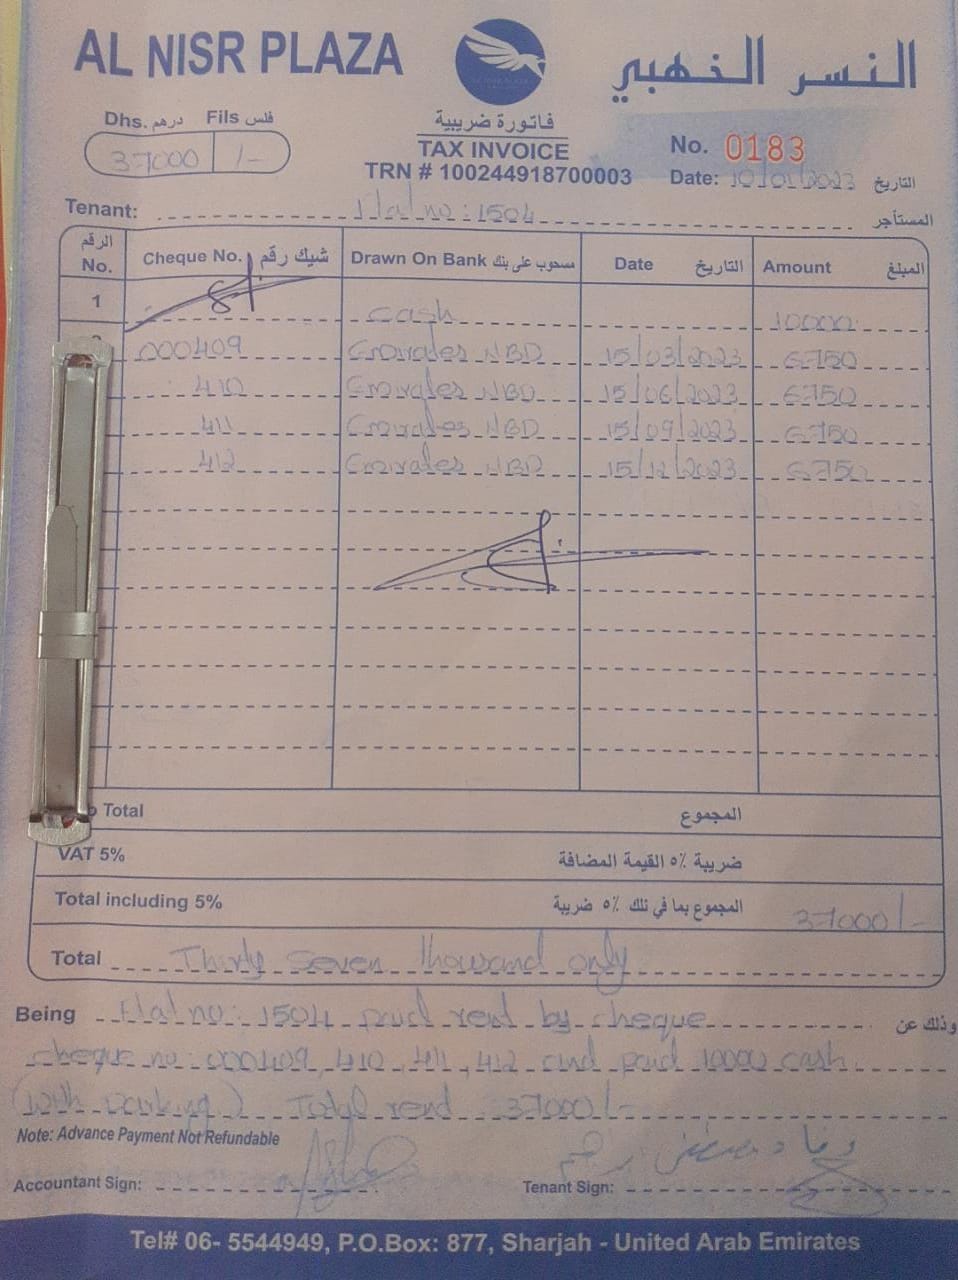 AL NISR PLAZA النسر الذهبي
Dhs. درهم Fils فلس
37000 /-
فاتورة ضريبية
TAX INVOICE
TRN # 100244918700003
No. 0183
Date: 10/01/2023 التاريخ
Tenant: Flat no: 1504 المستأجر
الرقم No. Cheque No. شيك رقم Drawn On Bank مسحوب على بنك Date التاريخ Amount المبلغ
1 cash 10000
000409 Emirates NBD 15/03/2023 6750
410 Emirates NBD 15/06/2023 6750
411 Emirates NBD 15/09/2023 6750
412 Emirates NBD 15/12/2023 6750
Total المجموع
VAT 5% ضريبة ٥٪ القيمة المضافة
Total including 5% المجموع بما في ذلك ٥٪ ضريبة 37000/-
Total Thirty Seven thousand only
Being Flat no: 1504 paid rent by cheque وذلك عن
cheque no: 000409, 410, 411, 412 and paid 10000 cash
(with parking) Total rent 37000/-
Note: Advance Payment Not Refundable
Accountant Sign: Tenant Sign:
Tel# 06- 5544949, P.O.Box: 877, Sharjah - United Arab Emirates